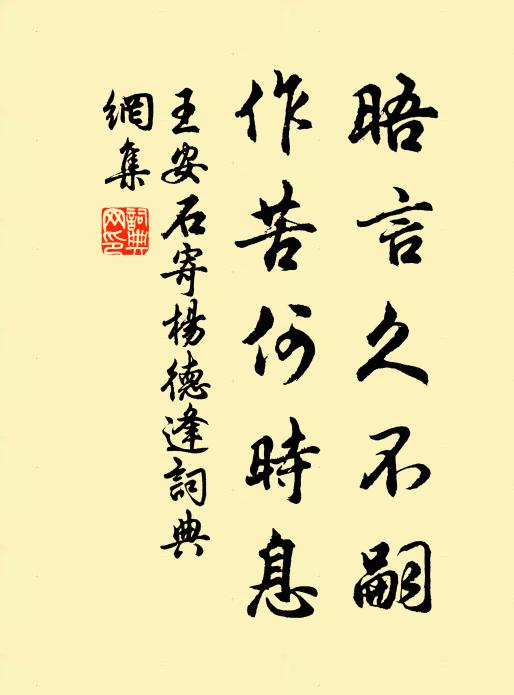 晤言久不嗣
作苦何時息
王安石寄楊德逢詞典
網集
詞典網印